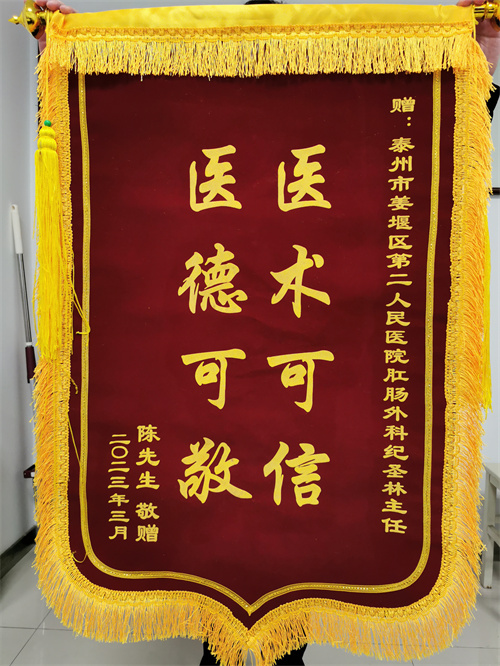 赠：泰州市姜堰区第二人民医院肛肠外科纪圣林主任
医术可信
医德可敬
陈先生 敬赠
二〇二三年三月